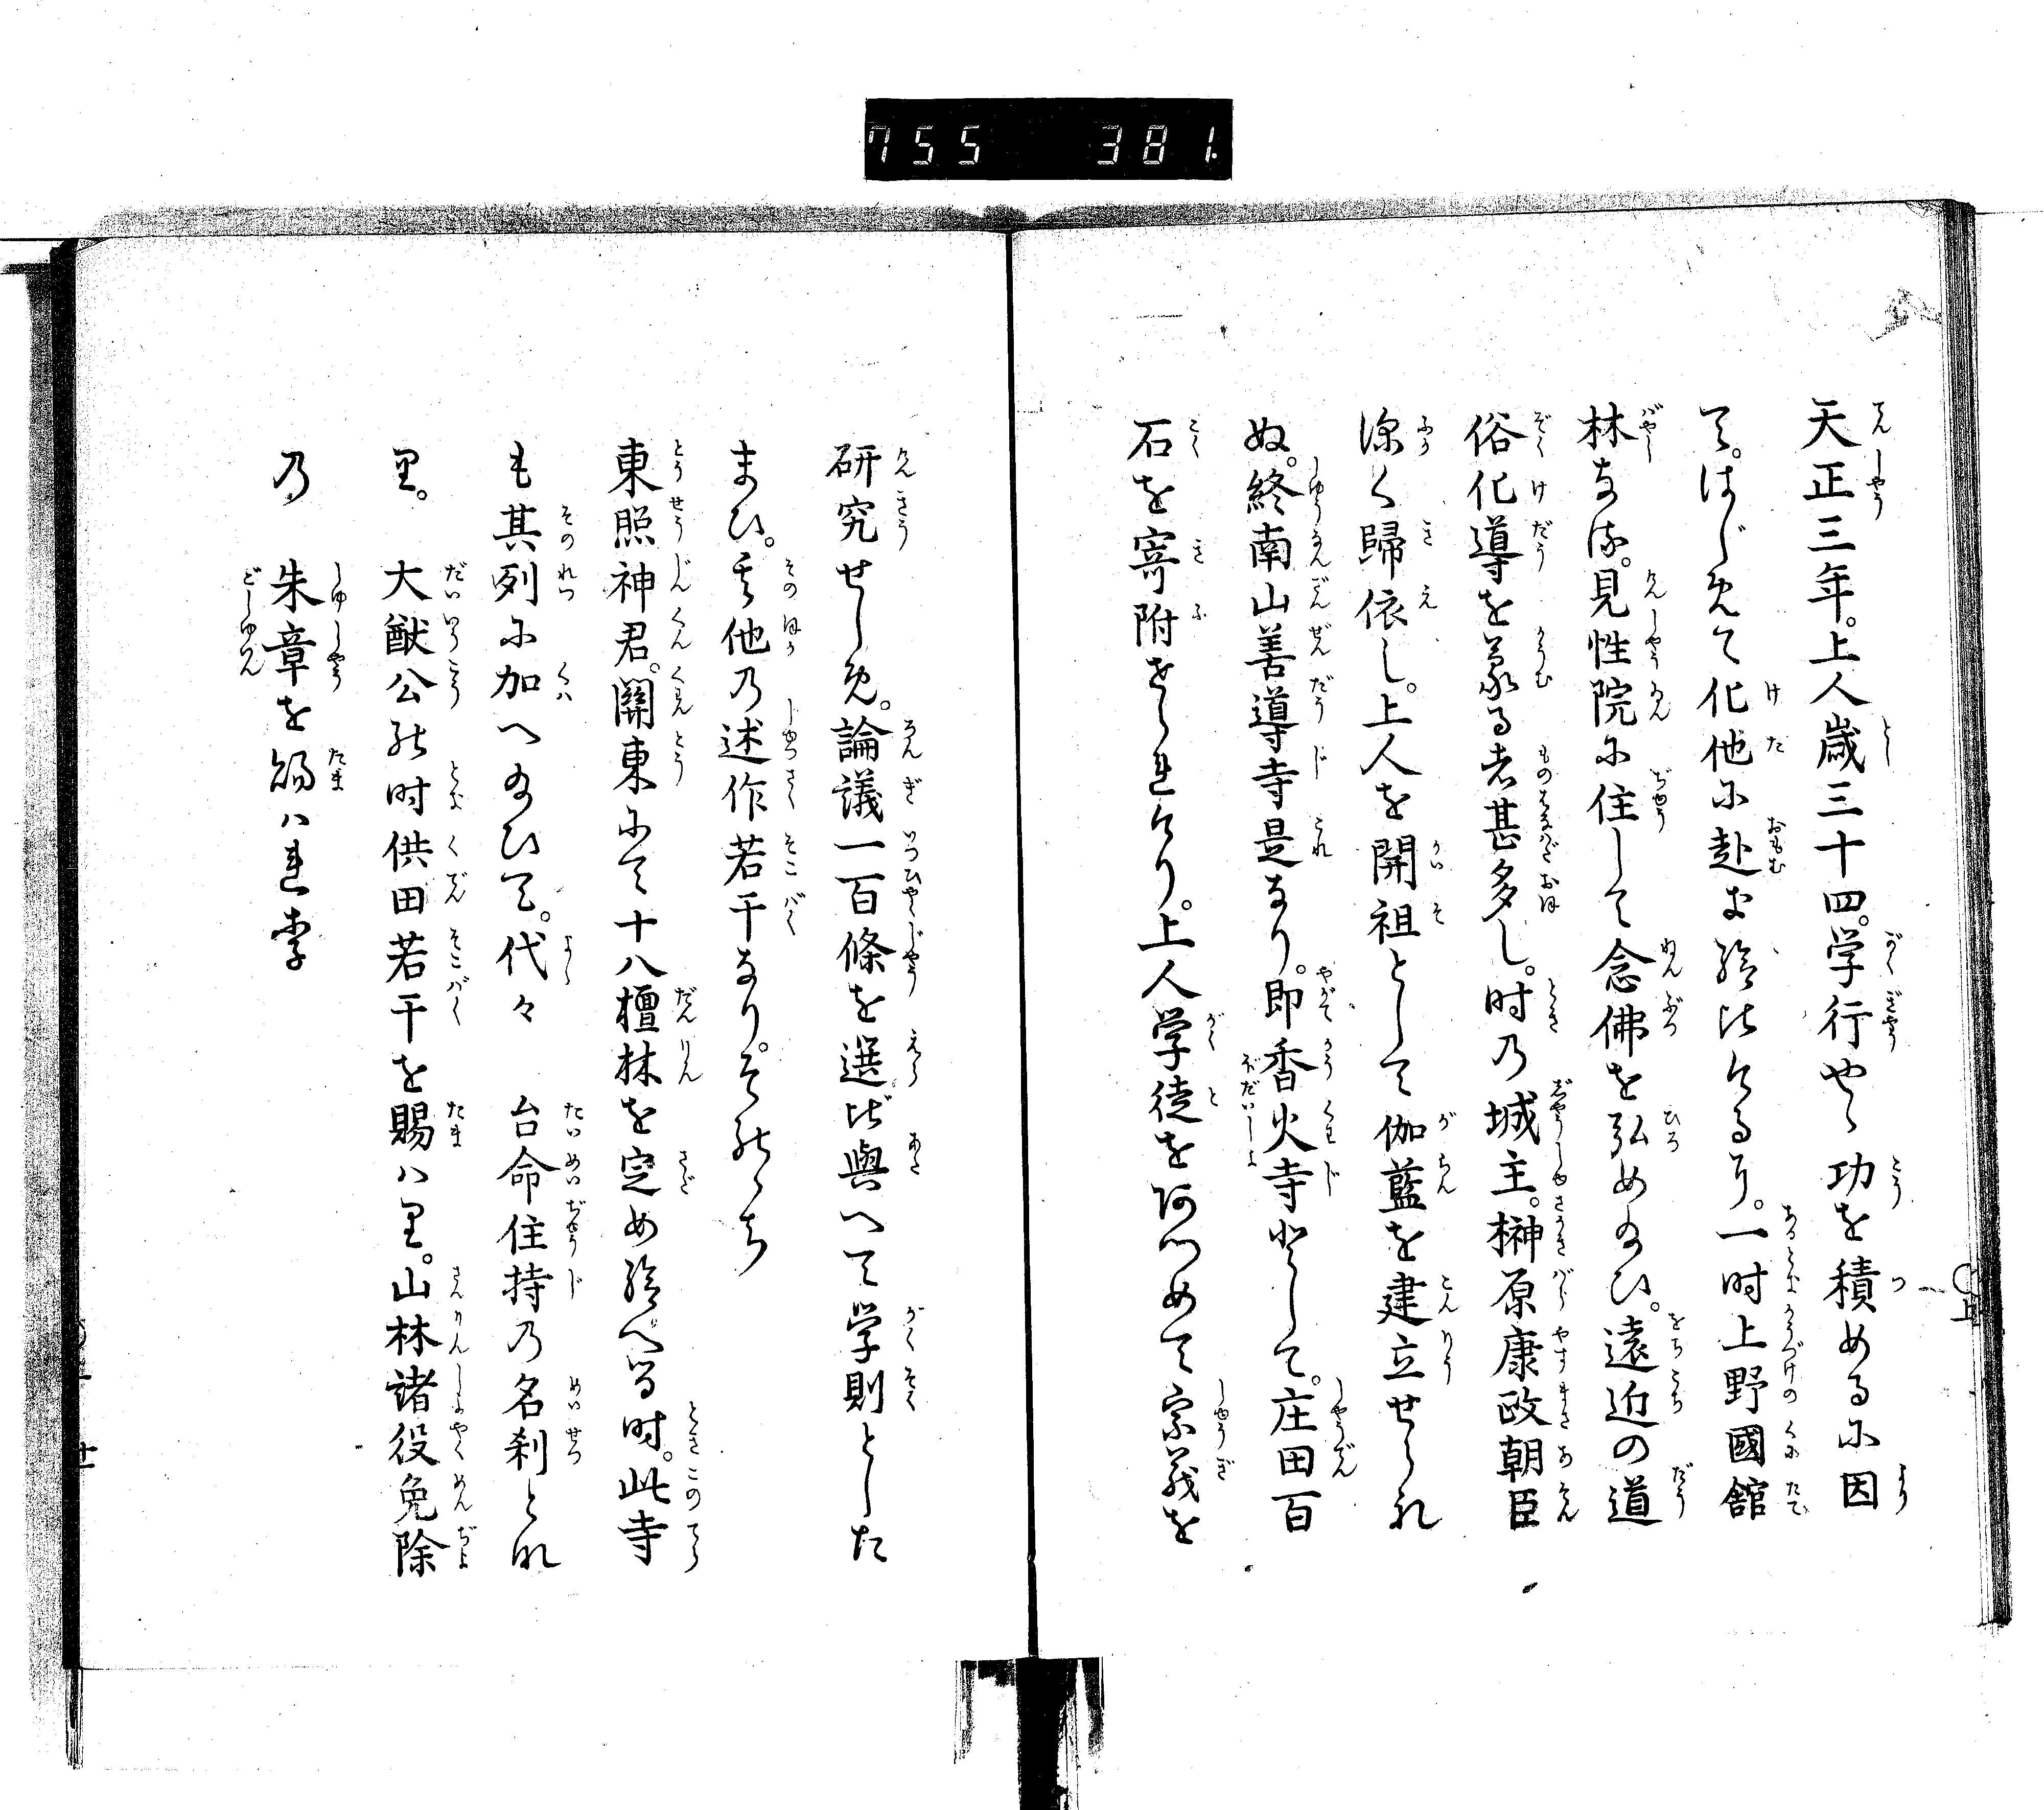 755 381.
天正三年。上人歳三十四。学行やゝ功を積めるに因
て。はじめて化他に赴き給ひけるに。一时上野國舘
林なる。見性院に住して念佛を弘め給ひ。遠近の道
俗化導を蒙る者甚多し。时の城主。榊原康政朝臣
深く歸依し。上人を開祖として伽藍を建立せられ
ぬ。終南山善導寺是なり。即香火寺として。庄田百
石を寄附せられけり。上人学徒をあつめて宗義を
研究せしめ。論議一百條を選び與へて学則とした
まひ。其他の述作若干なり。そのゝち
東照神君。關東にて十八檀林を定め給へる时。此寺
も其列に加へ給ひて。代々　台命住持の名刹とな
れり。　大猷公の时供田若干を賜はり。山林諸役免除
の　朱章を賜はれり